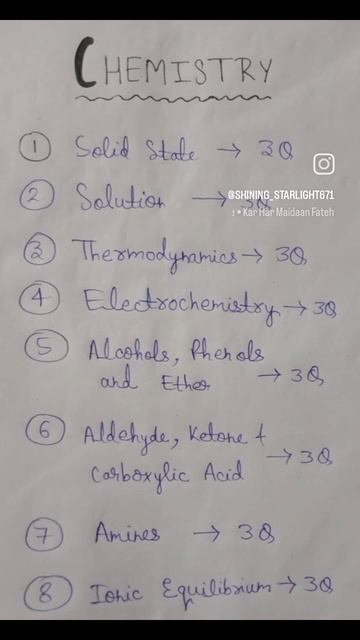 CHEMISTRY
① Solid State → 3Q
② Solution → 3Q
@SHINING_STARLIGHT671
• Kar Har Maidaan Fateh
③ Thermodynamics → 3Q
④ Electrochemistry → 3Q
⑤ Alcohols, Phenols
and Ether → 3Q
⑥ Aldehyde, Ketone +
Carboxylic Acid → 3Q
⑦ Amines → 3Q
⑧ Ionic Equilibrium → 3Q